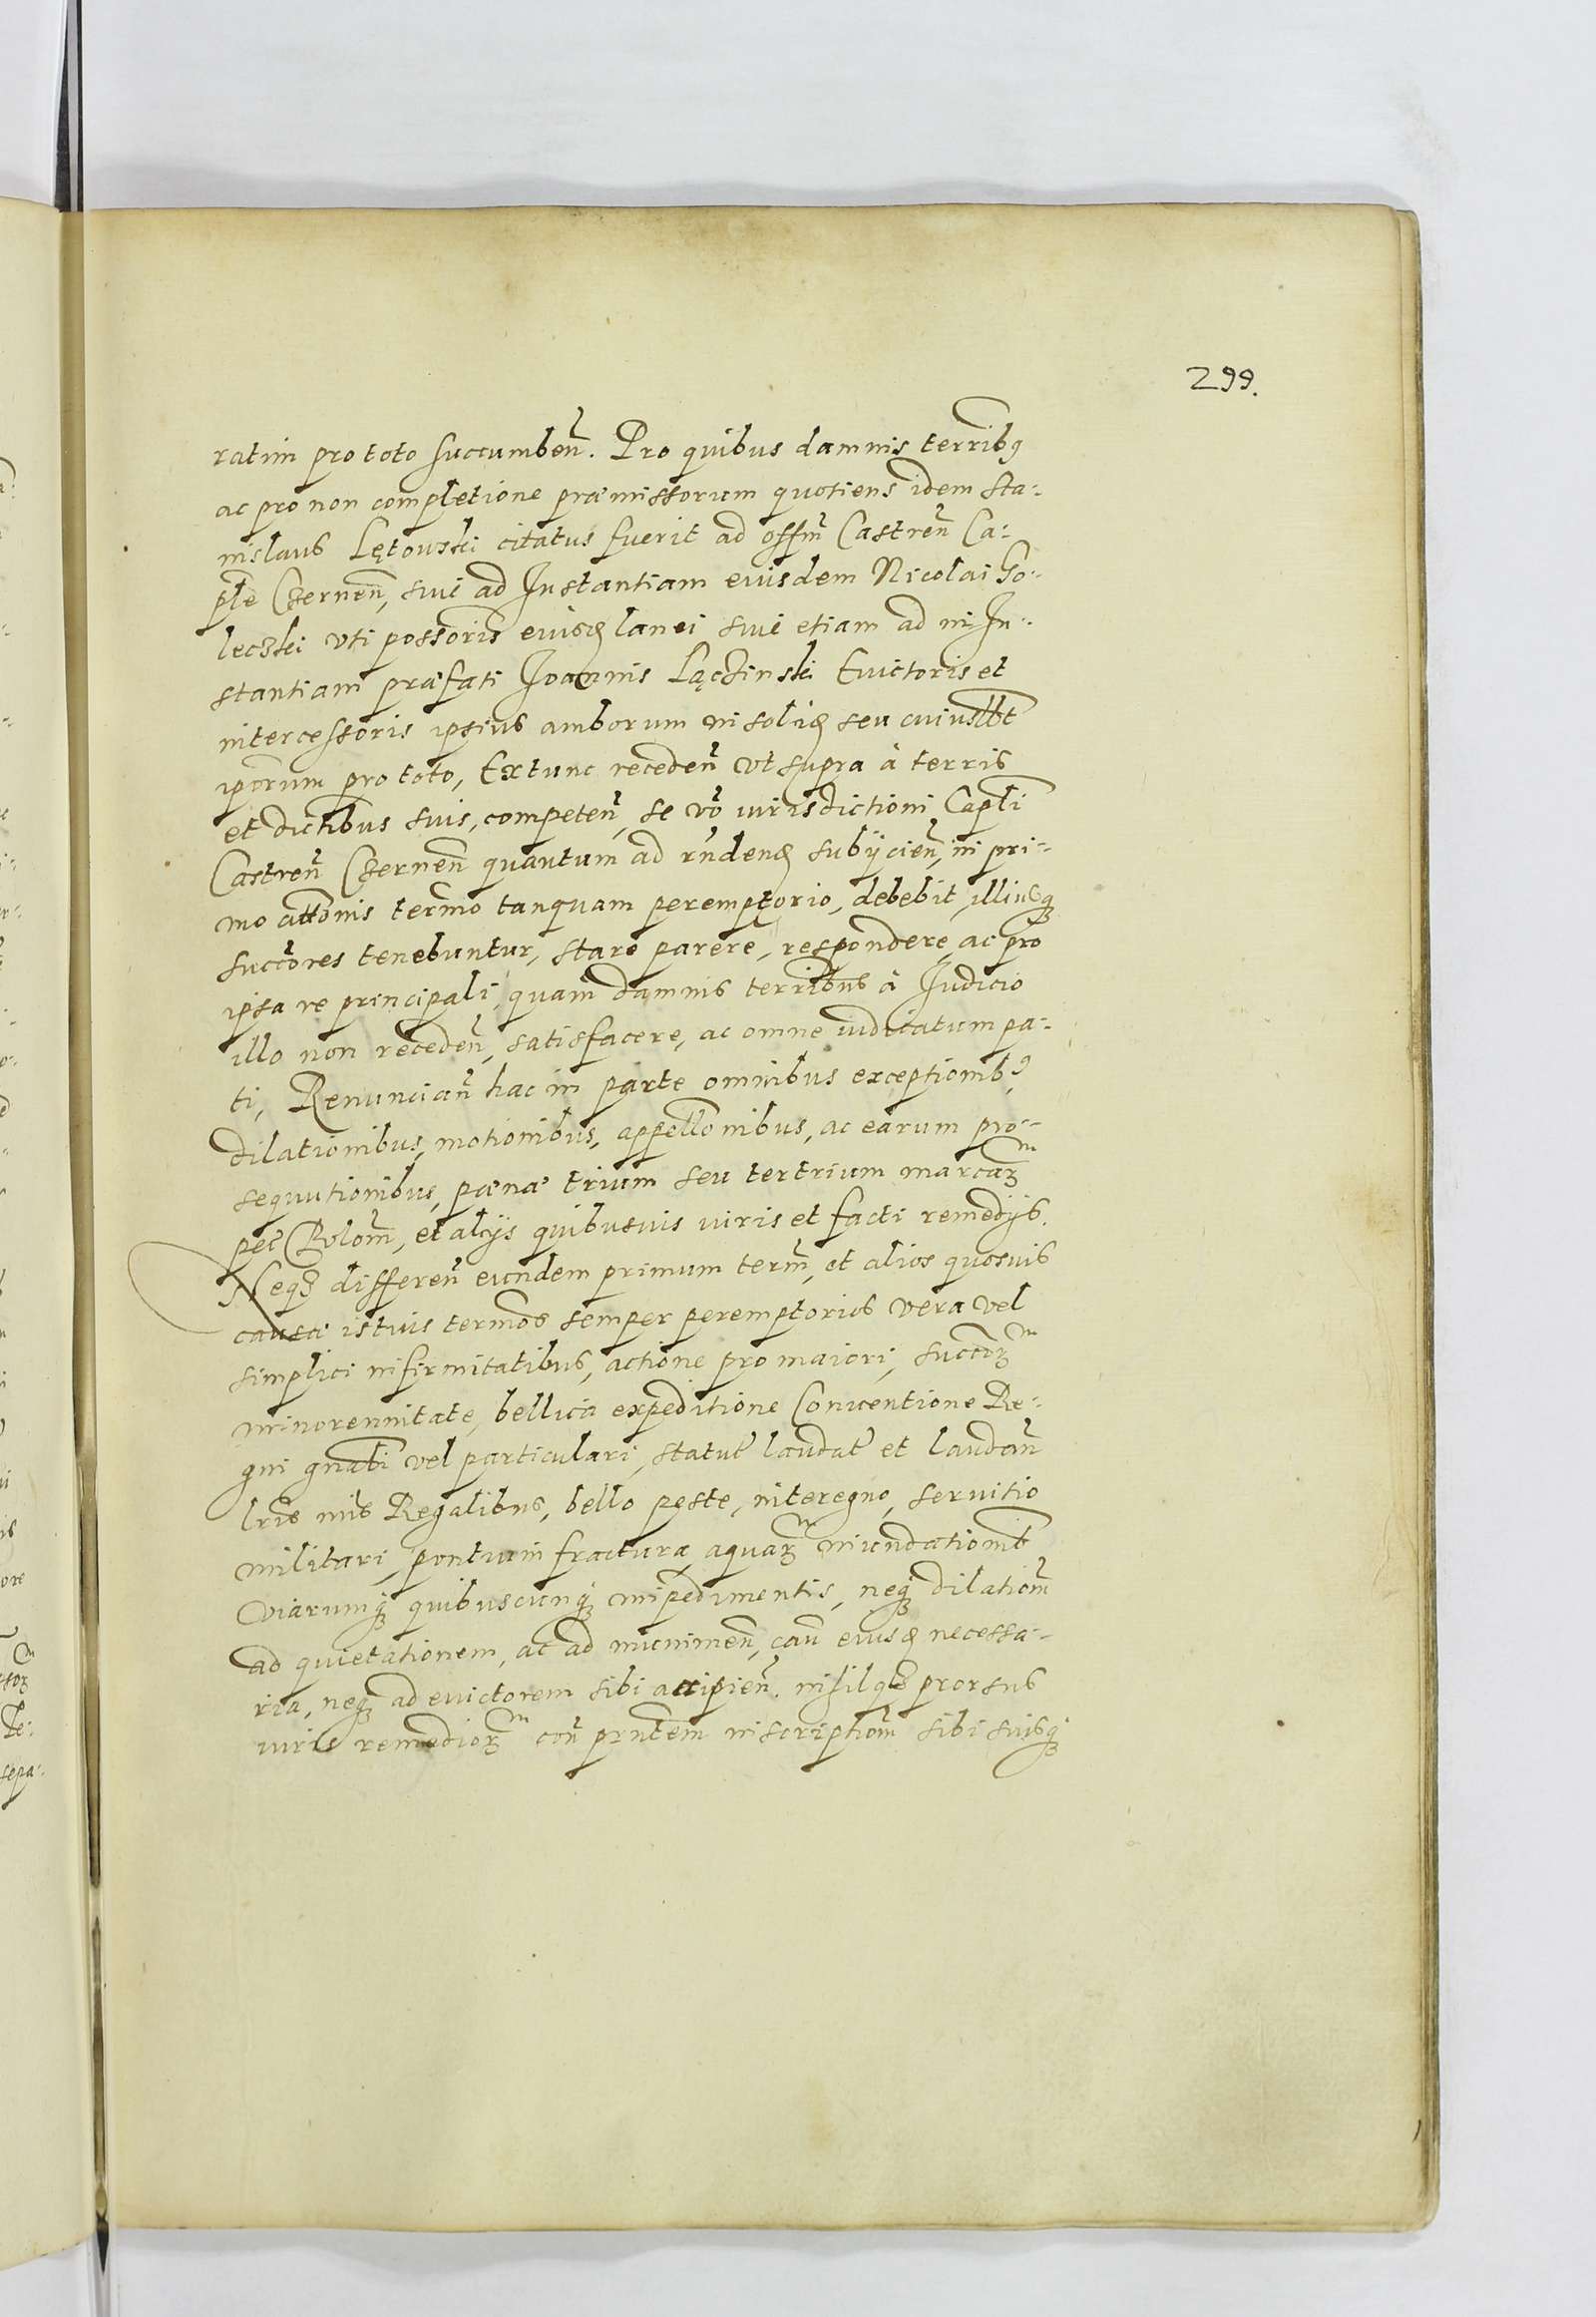 299.
ratim pro toto succumben̄. Pro quibus damnis terribꝰ
ac pro non completione præmissorum quotiens idem Sta-
nislaus Lętowski citatus fuerit ad offm̄ Castren̄ Ca-
ple Czernen̄, sive ad Instantiam eiusdem Nicolai Go-
leczki vti possoris eiusd lanei sive etiam ad in In-
stantiam præfati Joannis Łączinski Evictoris et
intercessoris ipsius amborum in solid seu cuiuslbt
ipsorum pro toto, Extunc receden̄ vt supra à terris
et dictibus suis, competen̄, se vo iurisdictioni Capli
Castren̄ Czernen̄ quantum ad rn̄dend subÿcien̄, in pri-
mo attonis termo tanquam peremptorio, debebit, illiusq
succores tenebuntur, stare parere, respondere, ac pro
ipsa re principali, quam damnis terribus à Judicio
illo non receden̄, satisfacere, ac omne iudicatum pa-
ti, Renuncian̄ hac in parte omnibus exceptionibꝰ,
dilationibus, motionibus, appellonibus, ac earum pro-
sequutionibus, pænæ trium seu ter trium marcarꝫ
pec Polom̄, et alijs quibusvis iuris et facti remedijs.
Neqꝫ differen̄ eundem primum term̄, et alios quosvis
causæ istius termos semper peremptorios vera vel
simplici infirmitatibus, actione pro maiori, succorꝫ
minorennitate, bellica expeditione Conventione Re-
gni gnali vel particulari, statut laudat et laudan̄
lris mis Regalibus, bello peste, interegno, servitio
militari, pontium fractura, aquarꝫ inundationibꝰ
Viarumqꝫ quibuscunqꝫ impedimentis, neqꝫ dilationem
ad quietationem, ac ad munimen̄, cau eiusd necessa-
ria, neqꝫ ad evictorem sibi accipien̄. nihilqꝫ prorsus
iuris remediorꝫ con̄ pn̄tem inscriptiom̄ sibi suisqꝫ